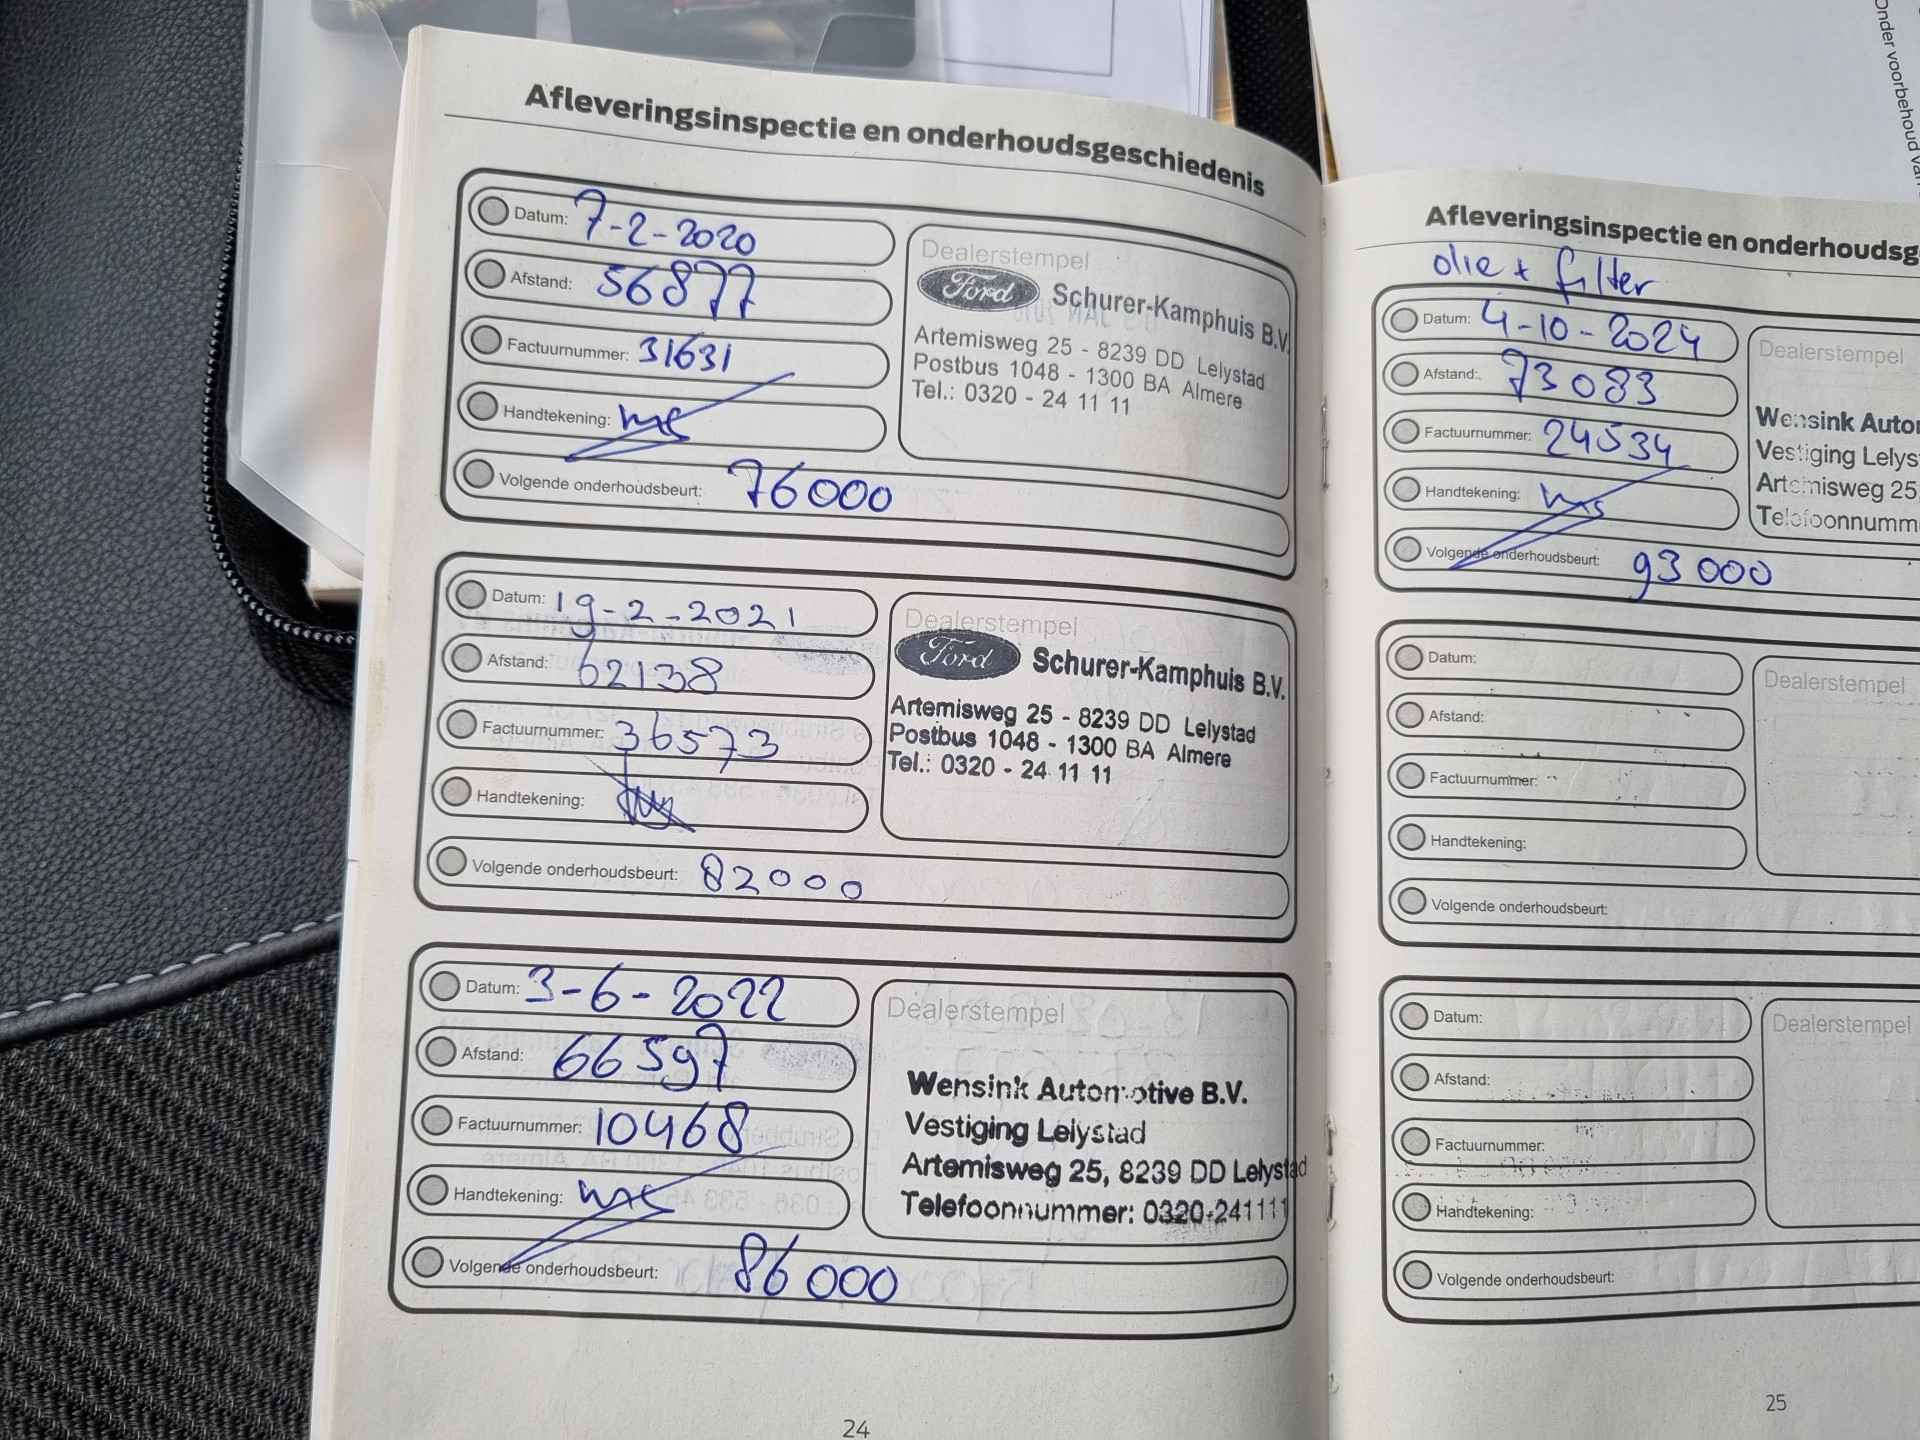 Afleveringsinspectie en onderhoudsgeschiedenis
Datum: 7-2-2020
Afstand: 56877
Factuurnummer: 31631
Handtekening:
Volgende onderhoudsbeurt: 76000
Dealerstempel
Ford Schurer-Kamphuis B.V.
Artemisweg 25 - 8239 DD Lelystad
Postbus 1048 - 1300 BA Almere
Tel.: 0320 - 24 11 11
Datum: 19-2-2021
Afstand: 62138
Factuurnummer: 36573
Handtekening:
Volgende onderhoudsbeurt: 82000
Dealerstempel
Ford Schurer-Kamphuis B.V.
Artemisweg 25 - 8239 DD Lelystad
Postbus 1048 - 1300 BA Almere
Tel.: 0320 - 24 11 11
Datum: 3-6-2022
Afstand: 66597
Factuurnummer: 10468
Handtekening:
Volgende onderhoudsbeurt: 86000
Dealerstempel
Wensink Automotive B.V.
Vestiging Lelystad
Artemisweg 25, 8239 DD Lelystad
Telefoonnummer: 0320-241111
24
Onder voorbehoud van
Afleveringsinspectie en onderhoudsg
olie + filter
Datum: 4-10-2024
Afstand: 73083
Factuurnummer: 24534
Handtekening:
Volgende onderhoudsbeurt: 93000
Dealerstempel
Wensink Autor
Vestiging Lelys
Artemisweg 25
Telefoonnumm
Datum:
Afstand:
Factuurnummer:
Handtekening:
Volgende onderhoudsbeurt:
Dealerstempel
Datum:
Afstand:
Factuurnummer:
Handtekening:
Volgende onderhoudsbeurt:
Dealerstempel
25